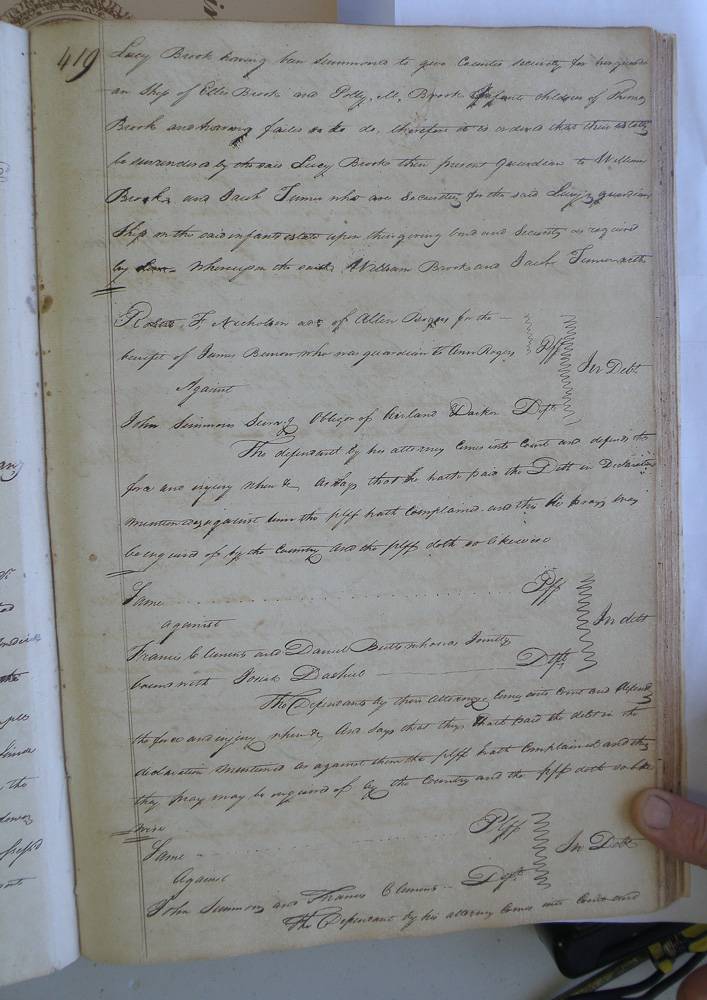 419
Lucy Brook having been summoned to give Counter security for her guardi
an Ship of Ellis Brook and Polly. M. Brook Infants children of Thomas
Brook and having failed so to do, therefore it is ordered that their estate
be surrendered by the said Lucy Brooks their present guardian to William
Brooks and Jacob Turner who are Securities for the said Lucy's guardian
Ship on the said infants estate upon their giving bond and Security as required
by Law. Whereupon the said William Brooks and Jacob Turner
Robert F. Nicholson adr of Allen Rogers for the —
benefit of James Benson who was guardian to Ann Rogers Plff
In Debt
Against
John Simmons Survg Obligor of Darden Deft
The defendant by his attorney Comes into Court and defends the
force and injury when &c And Says that he hath paid the Debt in Declaration
mentioned as against him the plff hath Complained and this he prays may
be enquired of by the Country And the plff doth so likewise
Same Plff
In debt
against
Francis Clements and Daniel Butts who was Jointly
bound with Josiah Dashiel Defts
The Defendants by their Attorney Comes into Court and defends
the force and injury when &c And Says that they hath paid the debt in the
declaration mentioned as against them the plff hath Complained and this
they pray may be enquired of by the Country and the plff doth so like
wise
Same Plff
In Debt
Against
John Simmons and Francis Clements Deft
The Defendant by his attorney Comes into Court and